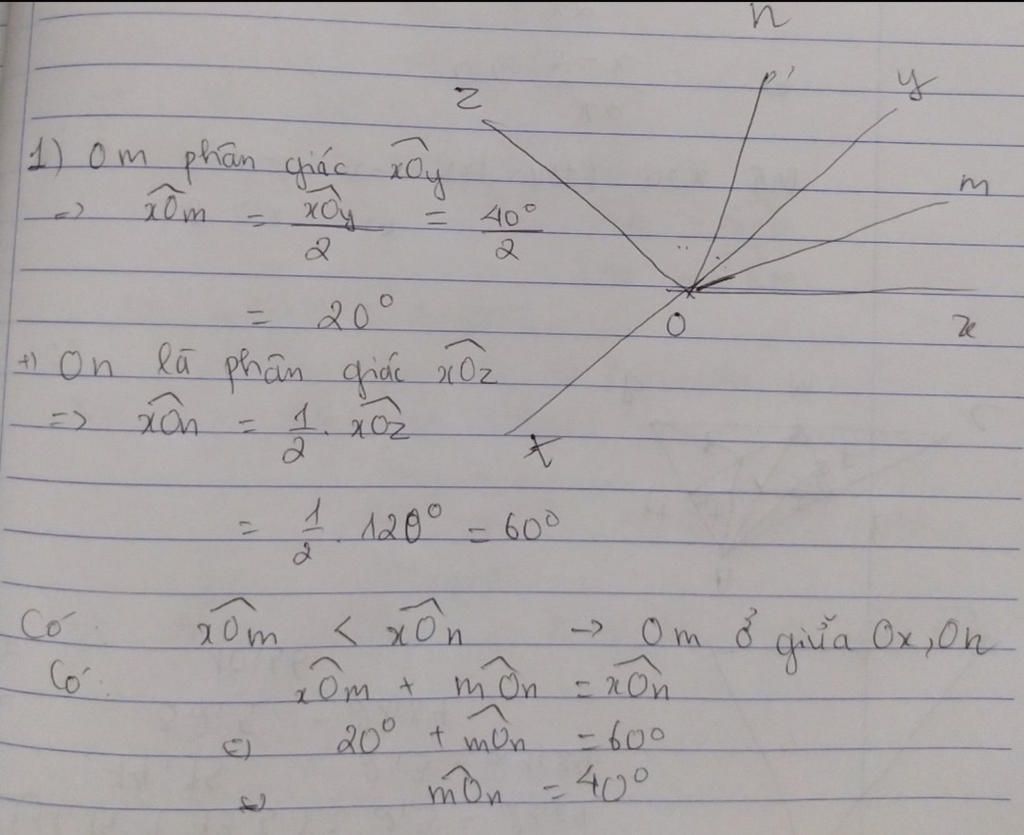 n
z
p'
y
m
O
x
t
1) Om phân giác xÔy
=> xÔm = xÔy/2 = 40°/2
= 20°
+) On là phân giác xÔz
=> xÔn = 1/2 . xÔz
= 1/2 . 120° = 60°
Có xÔm < xÔn -> Om ở giữa Ox, On
Có: xÔm + mÔn = xÔn
<=> 20° + mÔn = 60°
<=> mÔn = 40°